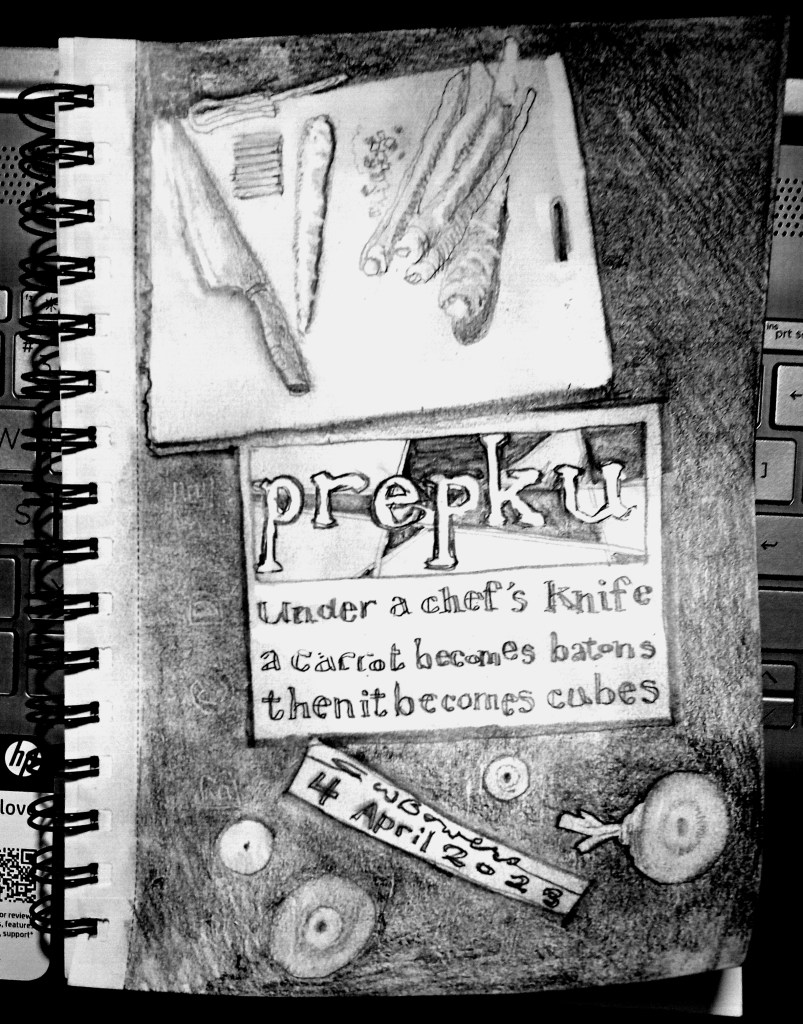 prepku
Under a chef's Knife
a carrot becomes batons
then it becomes cubes
4 April 2023
hp
love
or review
, feature
, support*
ins
prt sc
W
S
#
*
]